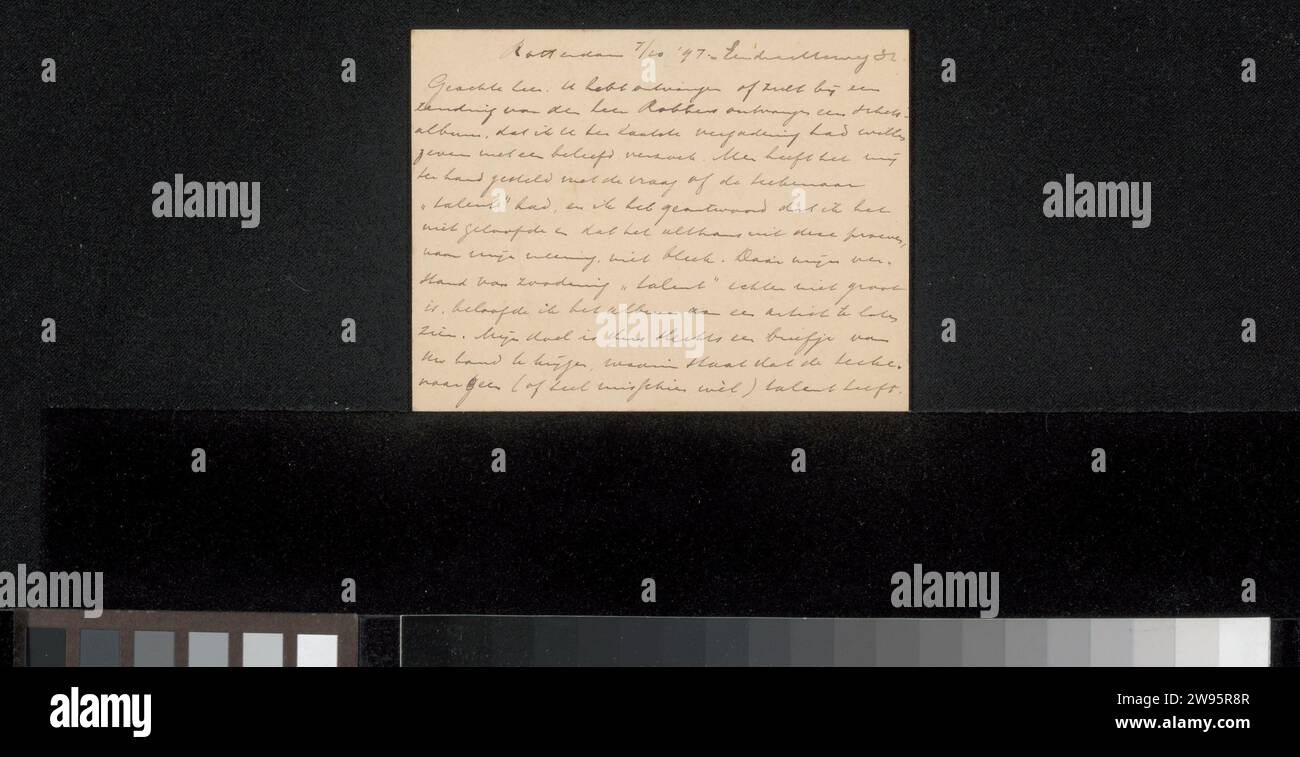 Rotterdam 7/10 '97. Eendrachtsweg
Geachte heer. U hebt ontvangen of zult bij een
zending van den heer Robbers ontvangen een schets-
album, dat ik U ter laatste vergadering had willen
geven met een beleefd verzoek. Men heeft het mij
ter hand gesteld met de vraag of de teekenaar
„talent" had, en ik heb geantwoord dat ik het
niet geloofde en dat het althans uit deze proeven,
naar mijn meening, niet bleek. Daar mijn ver-
stand van zoodanig „talent" echter niet groot
is, beloofde ik het album aan een artist te laten
zien. Mijn doel is dus slechts een briefje van
Uw hand te krijgen, waarin staat dat de teeke-
naar geen (of heel misschien wèl) talent heeft.
alamy
alamy
alamy
alamy
alamy
alamy
alamy
Image ID: 2W95R8R
www.alamy.com